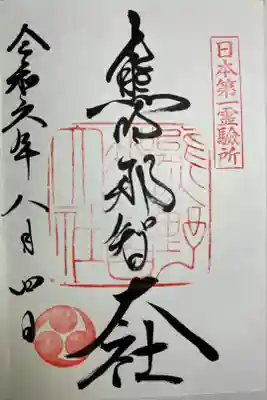 日本第一霊験所
熊野那智大社
熊野
大社
令和六年八月四日